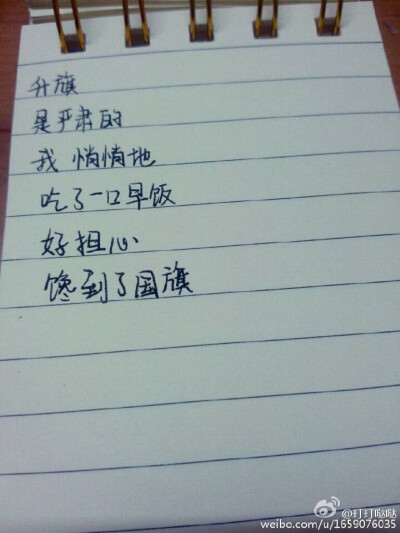 升旗
是严肃的
我悄悄地
吃了一口早饭
好担心
馋到了国旗
@玎玎哒哒
weibo.com/u/1659076035